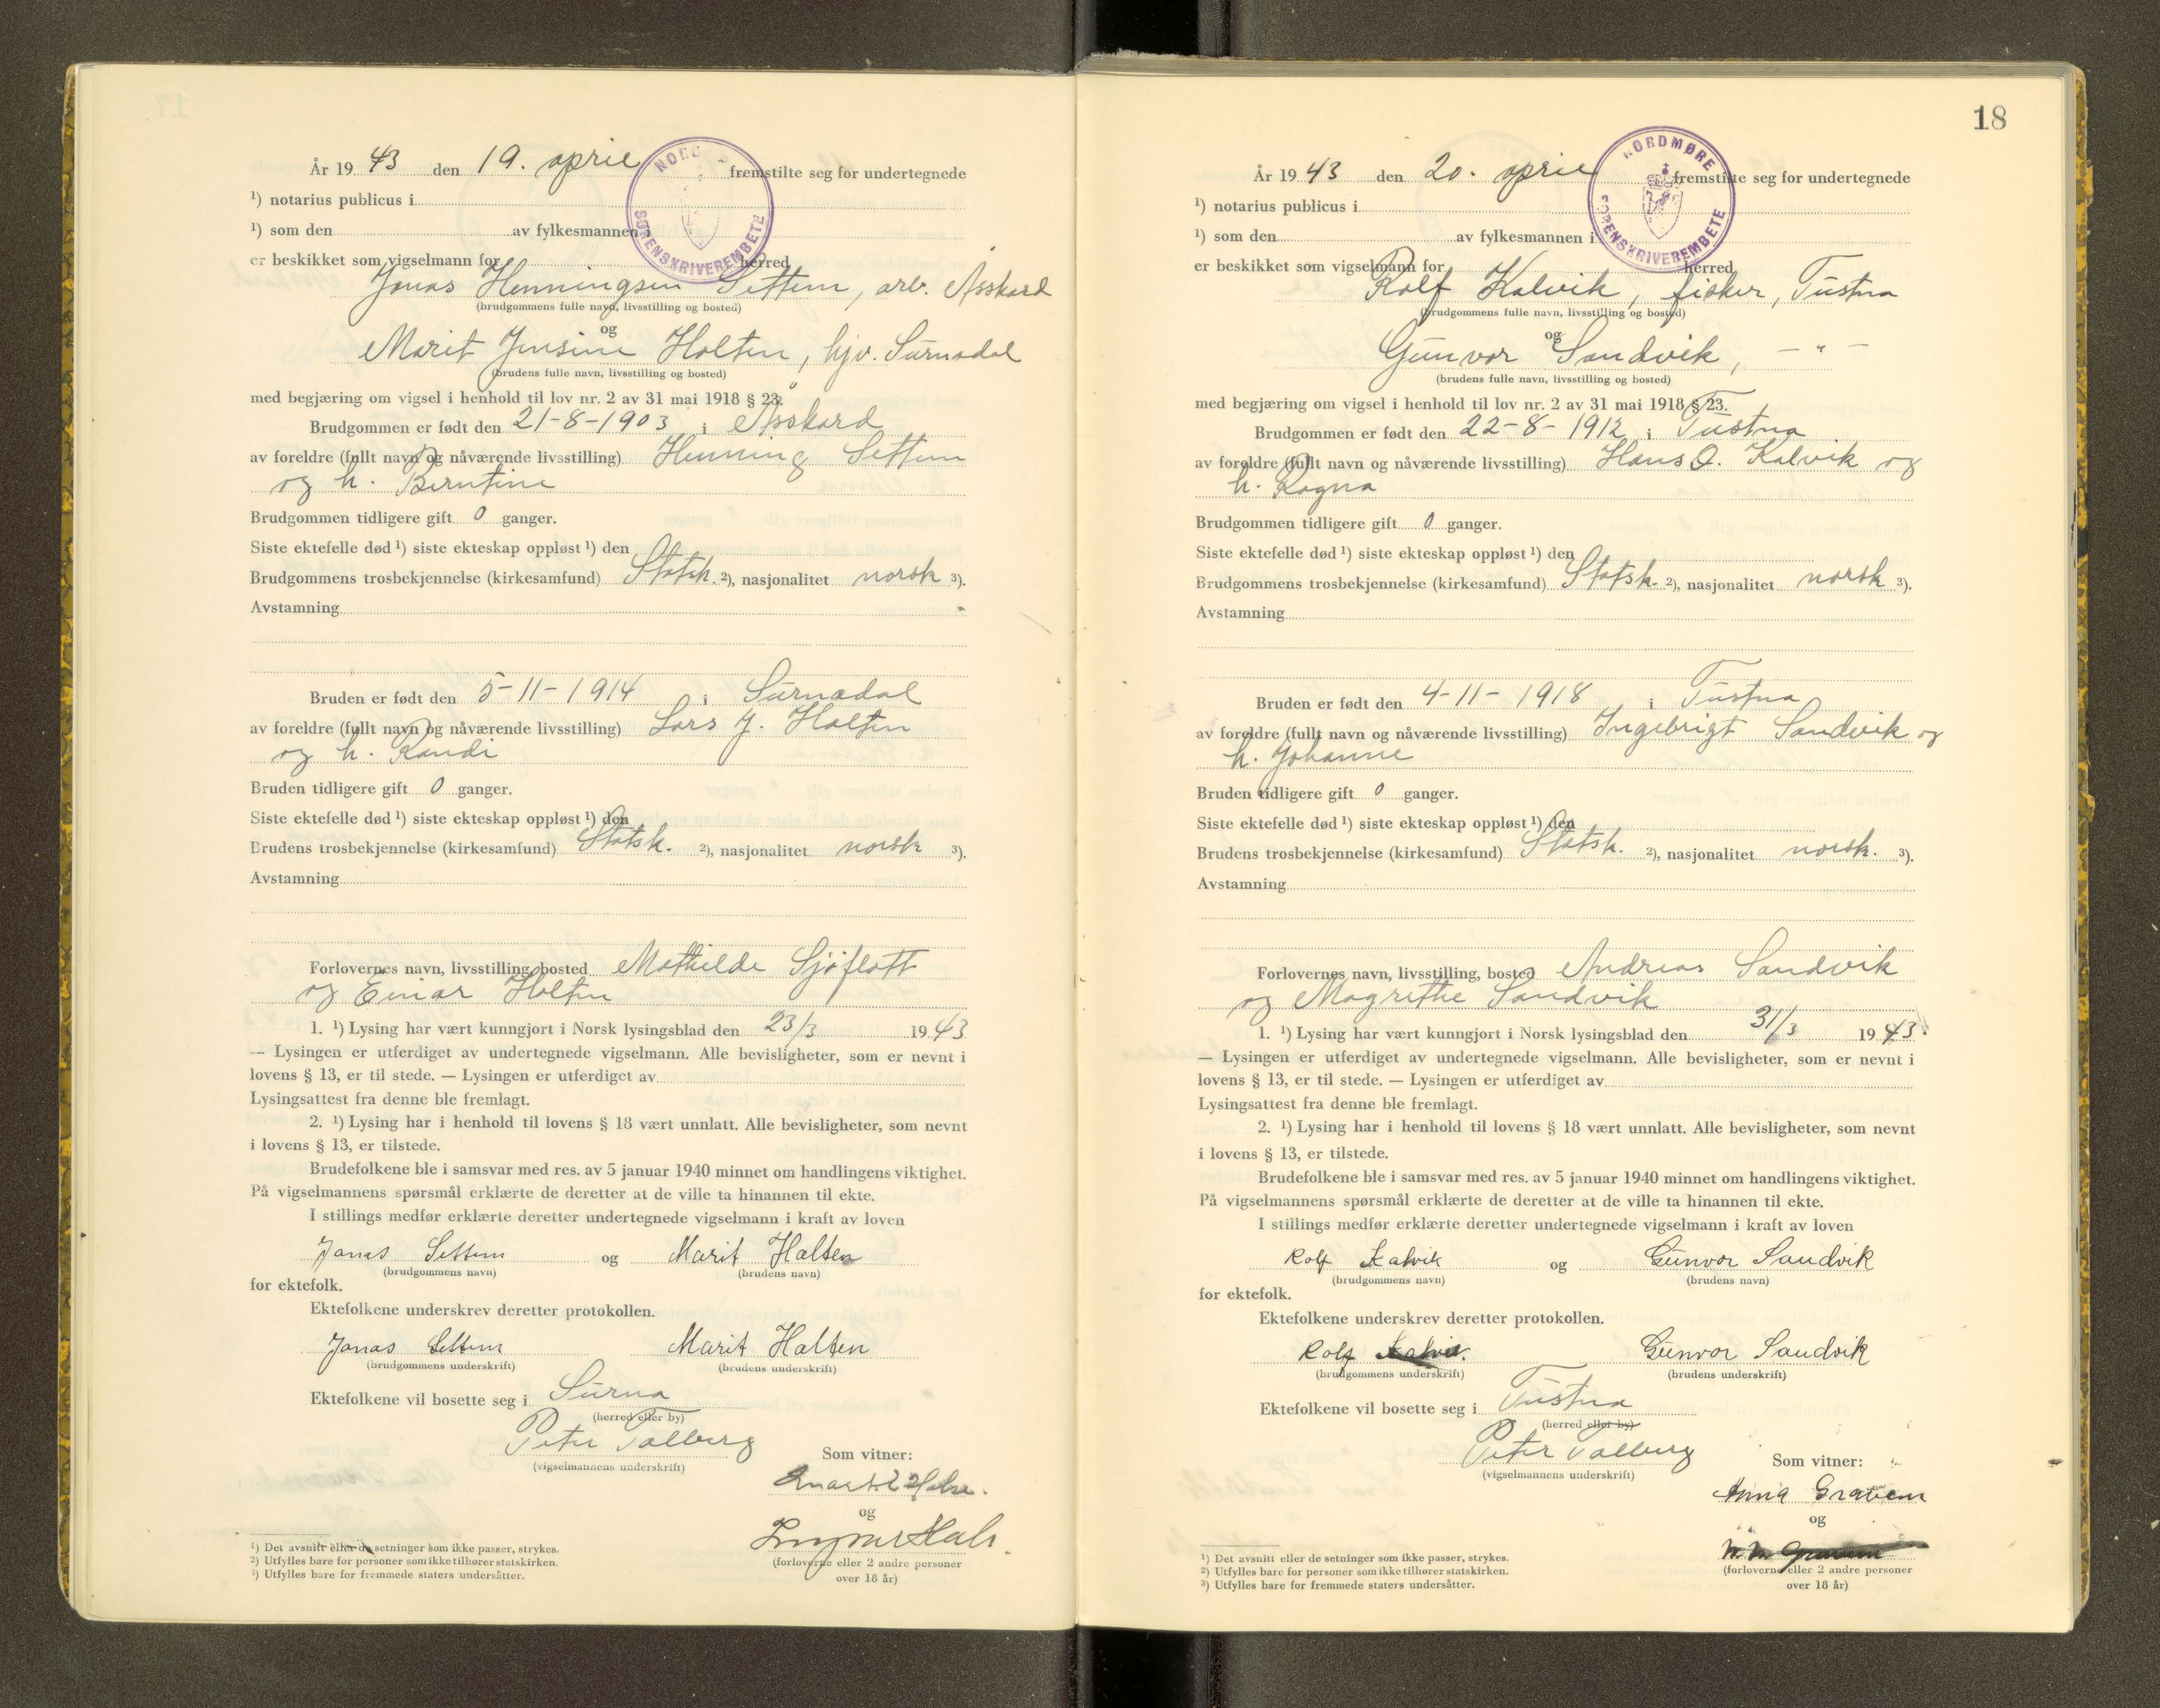 År 1943 den 19. april fremstilte seg for undertegnede
NORD
SORENSKRIVEREMBETE
¹) notarius publicus i
¹) som den av fylkesmannen
er beskikket som vigselmann for herred
Jonas Henningsen Settem, arb. Åsskard
(brudgommens fulle navn, livsstilling og bosted)
og
Marit Jensine Holten, hjv. Surnadal
(brudens fulle navn, livsstilling og bosted)
med begjæring om vigsel i henhold til lov nr. 2 av 31 mai 1918 § 23.
Brudgommen er født den 21-8-1903 i Åsskard
av foreldre (fullt navn og nåværende livsstilling) Henning Settem
og h. Berntine
Brudgommen tidligere gift 0 ganger.
Siste ektefelle død ¹) siste ekteskap oppløst ¹) den
Brudgommens trosbekjennelse (kirkesamfund) Statsk. ²), nasjonalitet norsk ³).
Avstamning
Bruden er født den 5-11-1914 i Surnadal
av foreldre (fullt navn og nåværende livsstilling) Lars J. Holten
og h. Randi
Bruden tidligere gift 0 ganger.
Siste ektefelle død ¹) siste ekteskap oppløst ¹) den
Brudens trosbekjennelse (kirkesamfund) Statsk. ²), nasjonalitet norsk ³).
Avstamning
Forlovernes navn, livsstilling, bosted Mathilde Sjøflott
og Einar Holten
1. ¹) Lysing har vært kunngjort i Norsk lysingsblad den 23/3 1943
— Lysingen er utferdiget av undertegnede vigselmann. Alle bevisligheter, som er nevnt i
lovens § 13, er til stede. — Lysingen er utferdiget av
Lysingsattest fra denne ble fremlagt.
2. ¹) Lysing har i henhold til lovens § 18 vært unnlatt. Alle bevisligheter, som nevnt
i lovens § 13, er tilstede.
Brudefolkene ble i samsvar med res. av 5 januar 1940 minnet om handlingens viktighet.
På vigselmannens spørsmål erklærte de deretter at de ville ta hinannen til ekte.
I stillings medfør erklærte deretter undertegnede vigselmann i kraft av loven
Jonas Settem og Marit Halten
(brudgommens navn) (brudens navn)
for ektefolk.
Ektefolkene underskrev deretter protokollen.
Jonas Settem Marit Halten
(brudgommens underskrift) (brudens underskrift)
Ektefolkene vil bosette seg i Surna
(herred eller by)
Peter Talberg
(vigselmannens underskrift)
Som vitner:
og
(forloverne eller 2 andre personer
over 18 år)
¹) Det avsnitt eller de setninger som ikke passer, strykes.
²) Utfylles bare for personer som ikke tilhører statskirken.
³) Utfylles bare for fremmede staters undersåtter.
18
År 1943 den 20. april fremstilte seg for undertegnede
NORDMØRE
SORENSKRIVEREMBETE
¹) notarius publicus i
¹) som den av fylkesmannen i
er beskikket som vigselmann for herred
Rolf Kalvik, fisker, Tustna
(brudgommens fulle navn, livsstilling og bosted)
og
Gunvor Sandvik, — " —
(brudens fulle navn, livsstilling og bosted)
med begjæring om vigsel i henhold til lov nr. 2 av 31 mai 1918 § 23.
Brudgommen er født den 22-8-1912 i Tustna
av foreldre (fullt navn og nåværende livsstilling) Hans O. Kalvik og
h. Ragna
Brudgommen tidligere gift 0 ganger.
Siste ektefelle død ¹) siste ekteskap oppløst ¹) den
Brudgommens trosbekjennelse (kirkesamfund) Statsk. ²), nasjonalitet norsk ³).
Avstamning
Bruden er født den 4-11-1918 i Tustna
av foreldre (fullt navn og nåværende livsstilling) Ingebrigt Sandvik og
h. Johanne
Bruden tidligere gift 0 ganger.
Siste ektefelle død ¹) siste ekteskap oppløst ¹) den
Brudens trosbekjennelse (kirkesamfund) Statsk. ²), nasjonalitet norsk. ³).
Avstamning
Forlovernes navn, livsstilling, bosted Andreas Sandvik
og Magrethe Sandvik
1. ¹) Lysing har vært kunngjort i Norsk lysingsblad den 31/3 1943.
— Lysingen er utferdiget av undertegnede vigselmann. Alle bevisligheter, som er nevnt i
lovens § 13, er til stede. — Lysingen er utferdiget av
Lysingsattest fra denne ble fremlagt.
2. ¹) Lysing har i henhold til lovens § 18 vært unnlatt. Alle bevisligheter, som nevnt
i lovens § 13, er tilstede.
Brudefolkene ble i samsvar med res. av 5 januar 1940 minnet om handlingens viktighet.
På vigselmannens spørsmål erklærte de deretter at de ville ta hinannen til ekte.
I stillings medfør erklærte deretter undertegnede vigselmann i kraft av loven
Rolf Kalvik og Gunvor Sandvik
(brudgommens navn) (brudens navn)
for ektefolk.
Ektefolkene underskrev deretter protokollen.
Rolf Kalvik. Gunvor Sandvik
(brudgommens underskrift) (brudens underskrift)
Ektefolkene vil bosette seg i Tustna
(herred eller by)
Peter Talberg
(vigselmannens underskrift)
Som vitner:
Anna Gravem
og
(forloverne eller 2 andre personer
over 18 år)
¹) Det avsnitt eller de setninger som ikke passer, strykes.
²) Utfylles bare for personer som ikke tilhører statskirken.
³) Utfylles bare for fremmede staters undersåtter.